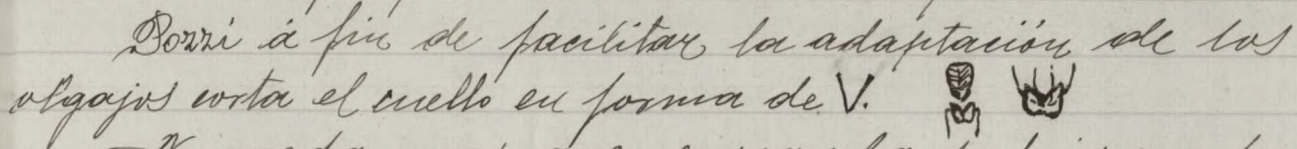 Pozzi á fin de facilitar la adaptación de los
olgajos corta el cuello en forma de V.